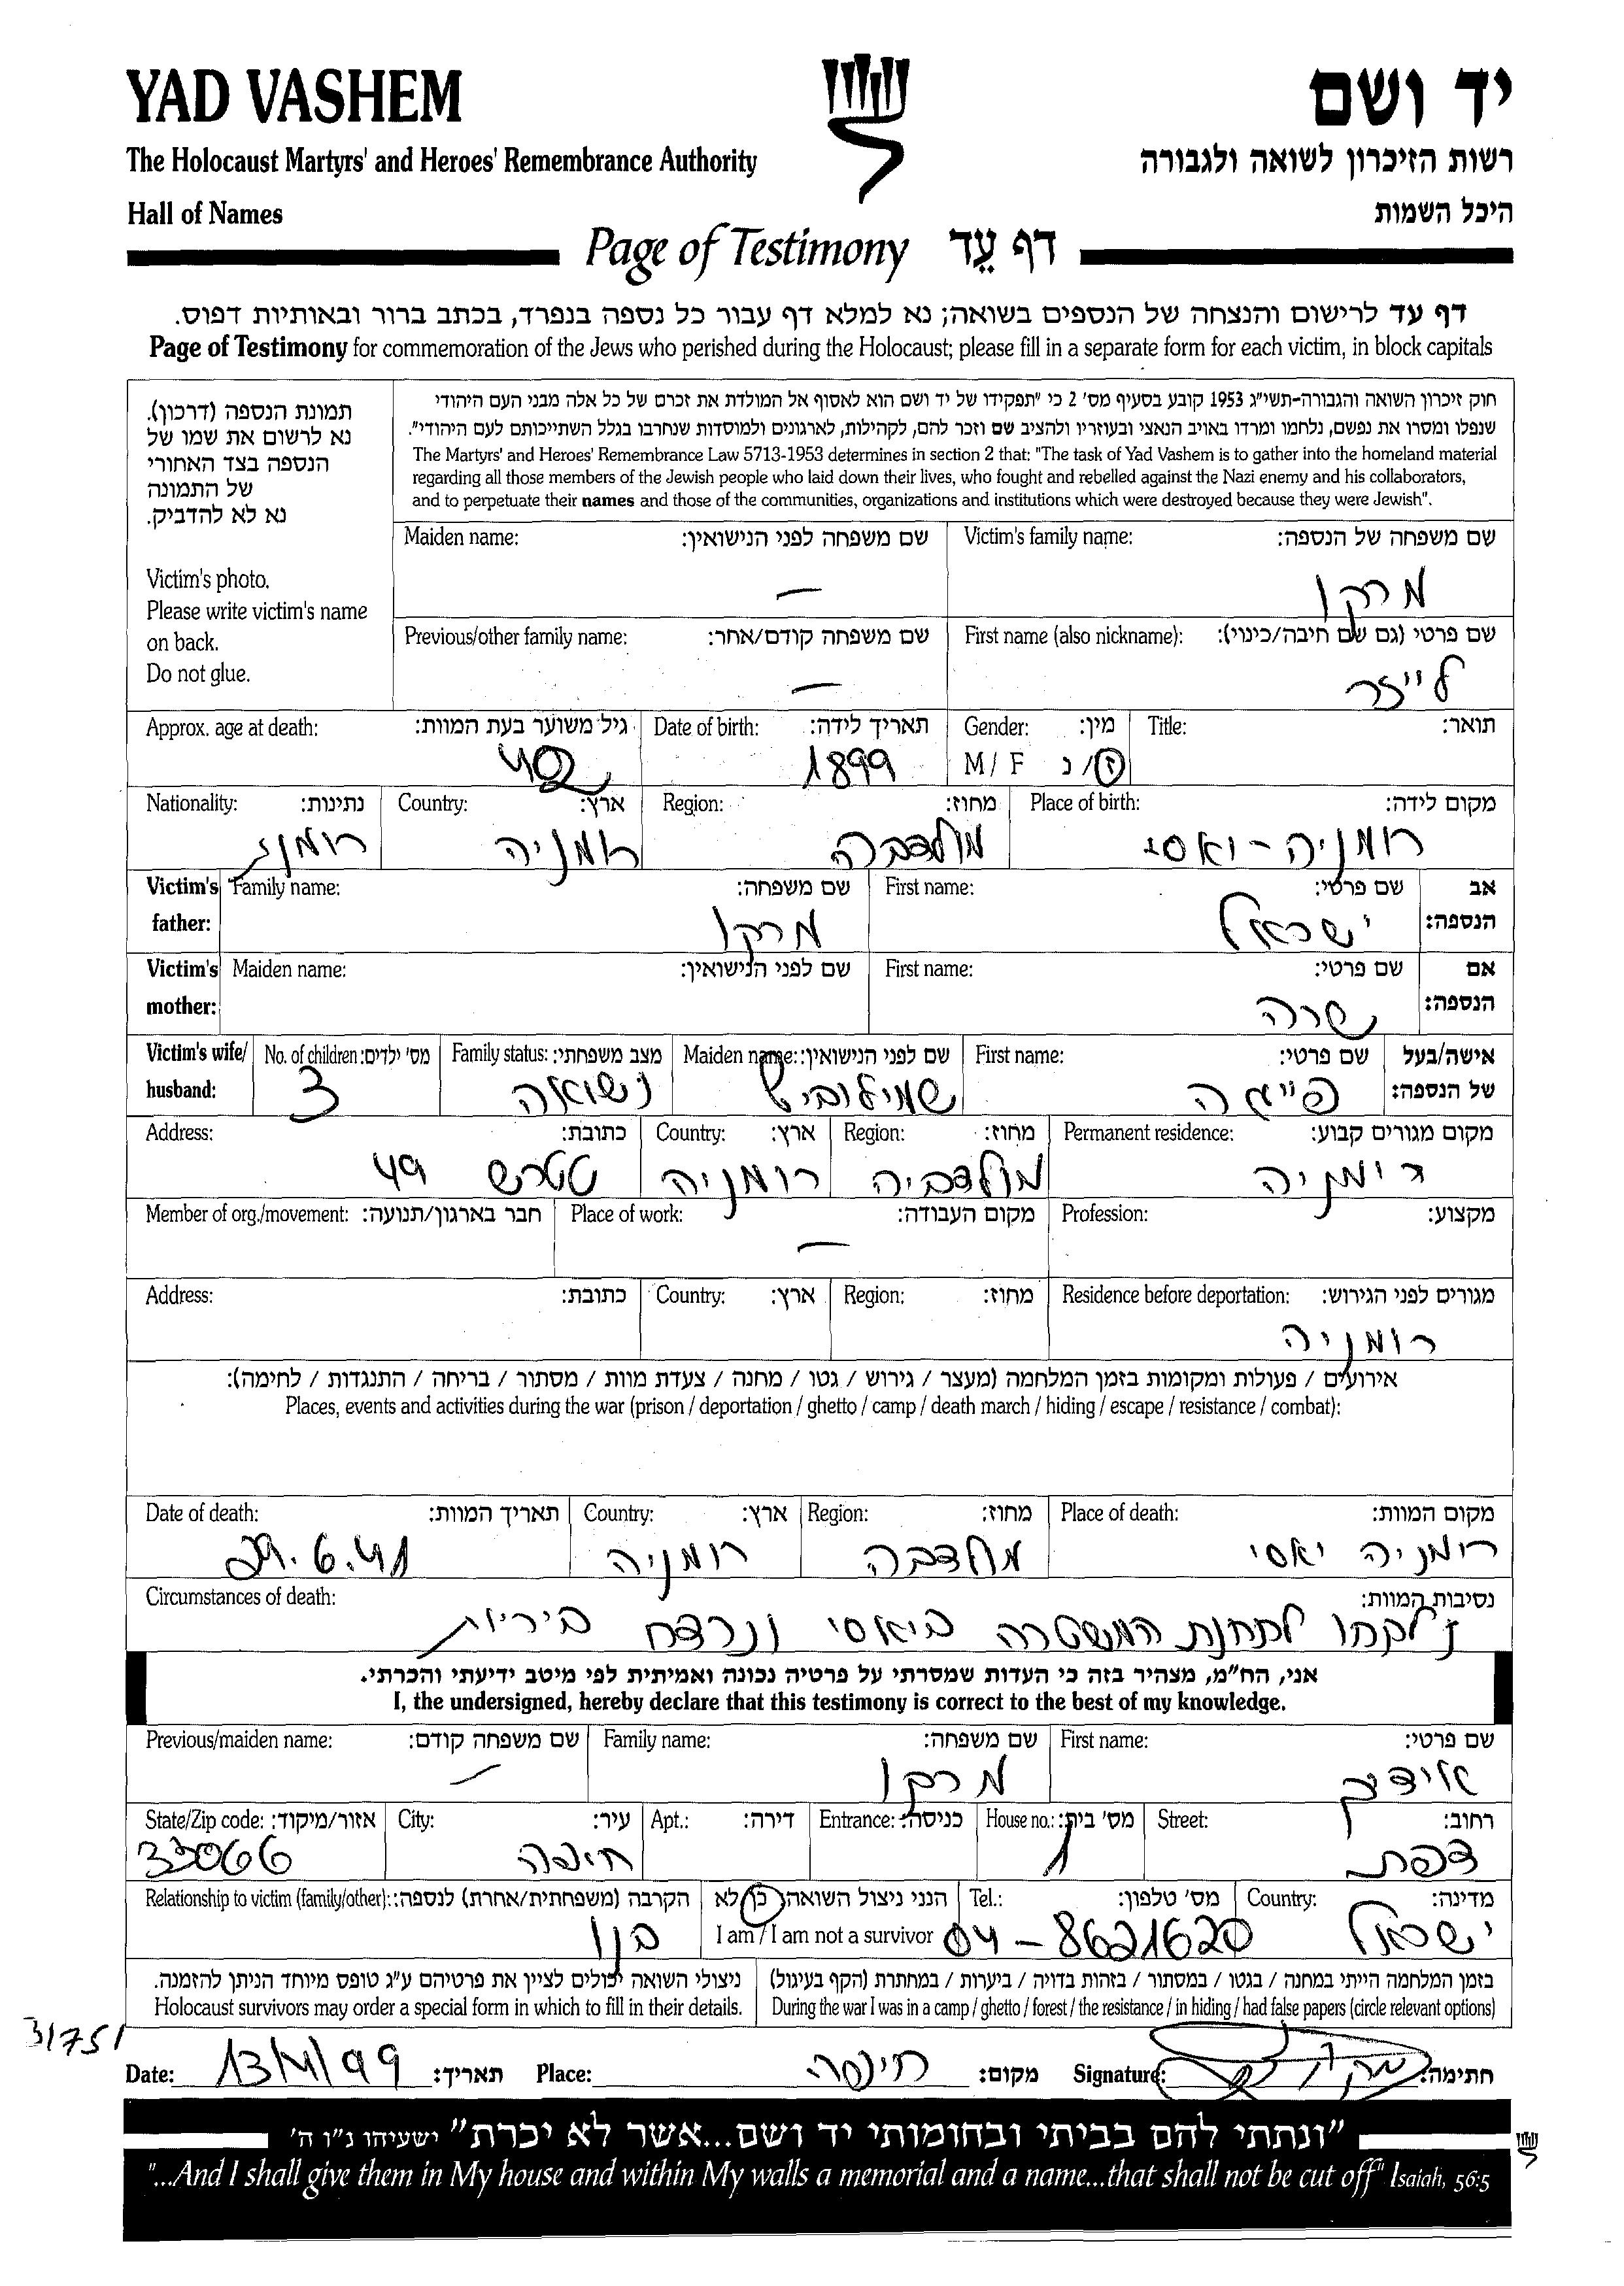 YAD VASHEM
יד ושם
The Holocaust Martyrs' and Heroes' Remembrance Authority
רשות הזיכרון לשואה ולגבורה
Hall of Names
היכל השמות
Page of Testimony דף עֵד
דף עד לרישום והנצחה של הנספים בשואה; נא למלא דף עבור כל נספה בנפרד, בכתב ברור ובאותיות דפוס.
Page of Testimony for commemoration of the Jews who perished during the Holocaust; please fill in a separate form for each victim, in block capitals
תמונת הנספה (דרכון).
נא לרשום את שמו של
הנספה בצד האחורי
של התמונה
נא לא להדביק.
Victim's photo.
Please write victim's name
on back.
Do not glue.
חוק זיכרון השואה והגבורה-תשי"ג 1953 קובע בסעיף מס' 2 כי "תפקידו של יד ושם הוא לאסוף אל המולדת את זכרם של כל אלה מבני העם היהודי
שנפלו ומסרו את נפשם, נלחמו ומרדו באויב הנאצי ובעוזריו ולהציב שם וזכר להם, לקהילות, לארגונים ולמוסדות שנחרבו בגלל השתייכותם לעם היהודי".
The Martyrs' and Heroes' Remembrance Law 5713-1953 determines in section 2 that: "The task of Yad Vashem is to gather into the homeland material
regarding all those members of the Jewish people who laid down their lives, who fought and rebelled against the Nazi enemy and his collaborators,
and to perpetuate their names and those of the communities, organizations and institutions which were destroyed because they were Jewish".
Victim's family name: שם משפחה של הנספה:
מרקו
Maiden name: שם משפחה לפני הנישואין:
—
First name (also nickname): שם פרטי (גם שם חיבה/כינוי):
לייזר
Previous/other family name: שם משפחה קודם/אחר:
—
Title: תואר:
Gender: מין:
M / F ז/נ
Date of birth: תאריך לידה:
1899
Approx. age at death: גיל משוער בעת המוות:
42
Place of birth: מקום לידה:
רומניה - יאסי
Region: מחוז:
מולדבה
Country: ארץ:
רומניה
Nationality: נתינות:
רומני
Victim's father: אב הנספה:
First name: שם פרטי:
ישראל
Family name: שם משפחה:
מרקו
Victim's mother: אם הנספה:
First name: שם פרטי:
שרה
Maiden name: שם לפני הנישואין:
Victim's wife/ husband: אישה/בעל של הנספה:
First name: שם פרטי:
פייגה
Maiden name: שם לפני הנישואין:
שמילוביץ
Family status: מצב משפחתי:
נשואה
No. of children: מס' ילדים:
3
Permanent residence: מקום מגורים קבוע:
רומניה
Region: מחוז:
מולדביה
Country: ארץ:
רומניה
Address: כתובת:
טטרש 49
Profession: מקצוע:
Place of work: מקום העבודה:
—
Member of org./movement: חבר בארגון/תנועה:
Residence before deportation: מגורים לפני הגירוש:
רומניה
Region: מחוז:
Country: ארץ:
Address: כתובת:
אירועים / פעולות ומקומות בזמן המלחמה (מעצר / גירוש / גטו / מחנה / צעדת מוות / מסתור / בריחה / התנגדות / לחימה):
Places, events and activities during the war (prison / deportation / ghetto / camp / death march / hiding / escape / resistance / combat):
Place of death: מקום המוות:
רומניה יאסי
Region: מחוז:
מולדבה
Country: ארץ:
רומניה
Date of death: תאריך המוות:
29.6.41
Circumstances of death: נסיבות המוות:
נלקחו לתחנת המשטרה ביאסי ונרצח ביריות
אני, הח"מ, מצהיר בזה כי העדות שמסרתי על פרטיה נכונה ואמיתית לפי מיטב ידיעתי והכרתי.
I, the undersigned, hereby declare that this testimony is correct to the best of my knowledge.
First name: שם פרטי:
Family name: שם משפחה:
מרקו
Previous/maiden name: שם משפחה קודם:
—
Street: רחוב:
צפת
House no.: מס' בית:
1
Entrance: כניסה:
Apt.: דירה:
City: עיר:
חיפה
State/Zip code: אזור/מיקוד:
33066
Country: מדינה:
ישראל
Tel.: מס' טלפון:
04-8621620
הנני ניצול השואה: כן/לא
I am / I am not a survivor
Relationship to victim (family/other): הקרבה (משפחתית/אחרת) לנספה:
בנו
בזמן המלחמה הייתי במחנה / בגטו / במסתור / בזהות בדויה / ביערות / במחתרת (הקף בעיגול)
During the war I was in a camp / ghetto / forest / the resistance / in hiding / had false papers (circle relevant options)
ניצולי השואה יכולים לציין את פרטיהם ע"ג טופס מיוחד הניתן להזמנה.
Holocaust survivors may order a special form in which to fill in their details.
31751
Date: 13/V/99 תאריך:
Place: חיפה מקום:
Signature: חתימה:
"ונתתי להם בביתי ובחומותי יד ושם...אשר לא יכרת" ישעיהו נ"ו ה'
"...And I shall give them in My house and within My walls a memorial and a name...that shall not be cut off" Isaiah, 56:5